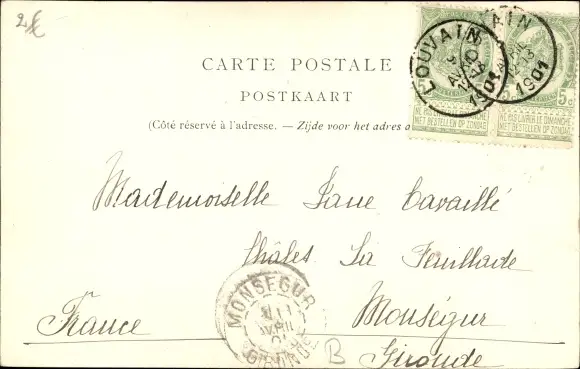 2€
CARTE POSTALE
POSTKAART
(Côté réservé à l'adresse. — Zijde voor het adres a
LOUVAIN
1901
LOUVAIN
1901
5c
5c
NE PAS LIVRER LE DIMANCHE
NIET BESTELLEN OP ZONDAG
NE PAS LIVRER LE DIMANCHE
NIET BESTELLEN OP ZONDAG
Mademoiselle Jane Cavaillé
Châlet La Feuillade
France
Monségur
Gironde
MONSEGUR
11
AVRIL
01
GIRONDE
B